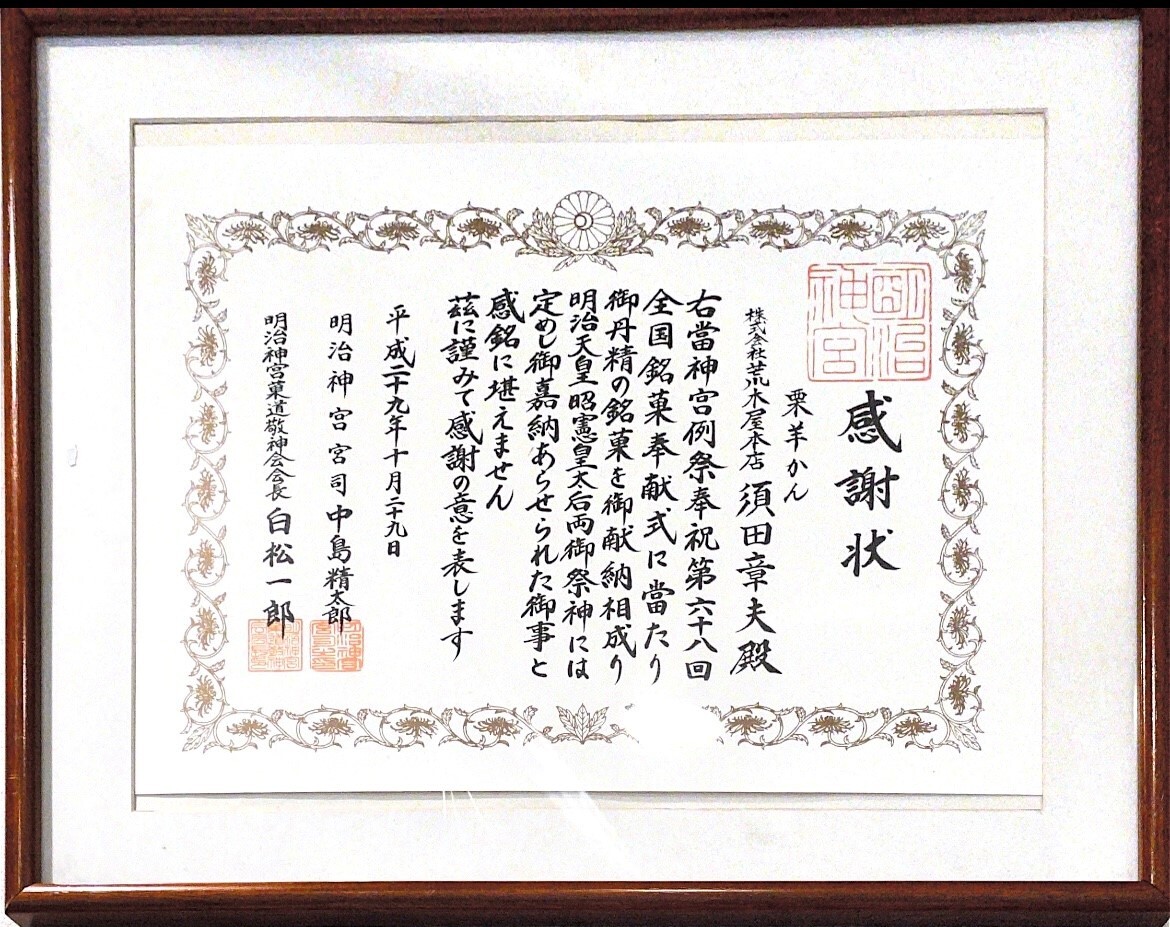 明治神宮
感謝状
栗羊かん
株式会社荒木屋本店 須田章夫殿
右當神宮例祭奉祝第六十八回
全国銘菓奉献式に當たり
御丹精の銘菓を御献納相成り
明治天皇昭憲皇太后両御祭神には
定めし御嘉納あらせられた御事と
感銘に堪えません
茲に謹みて感謝の意を表します
平成二十九年十月二十九日
明治神宮宮司 中島精太郎
明治神宮菓道敬神会会長 白松一郎